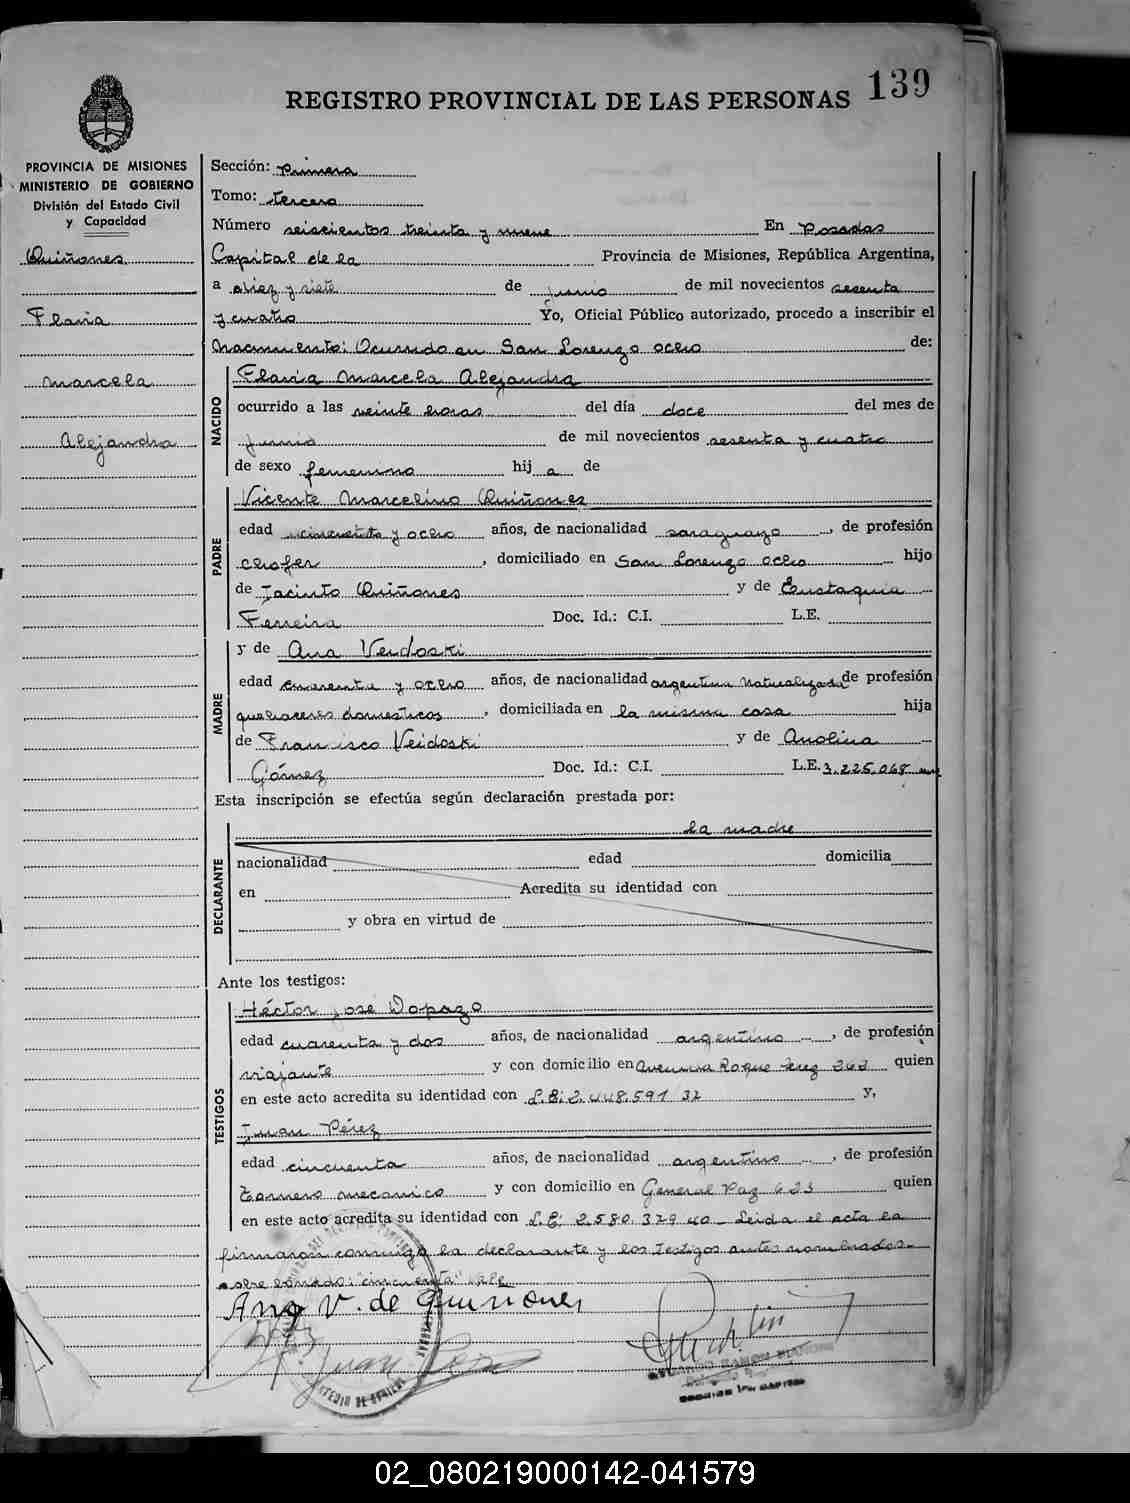 139
REGISTRO PROVINCIAL DE LAS PERSONAS
PROVINCIA DE MISIONES
MINISTERIO DE GOBIERNO
División del Estado Civil
y Capacidad
Quiñones
Flavia
Marcela
Alejandra
Sección: Primera
Tomo: tercero
Número seiscientos treinta y nueve En Posadas
Capital de la Provincia de Misiones, República Argentina,
a diez y siete de junio de mil novecientos sesenta
y cuatro Yo, Oficial Público autorizado, procedo a inscribir el
Nacimiento: Ocurrido en San Lorenzo ocho de:
NACIDO
Flavia Marcela Alejandra
ocurrido a las veinte horas del día doce del mes de
junio de mil novecientos sesenta y cuatro
de sexo femenino hij a de
PADRE
Vicente Marcelino Quiñonez
edad cincuenta y ocho años, de nacionalidad paraguayo, de profesión
chofer, domiciliado en San Lorenzo ocho hijo
de Jacinto Quiñones y de Eustaquia
Ferreira Doc. Id.: C.I. L.E.
MADRE
y de Ana Veidoski
edad cuarenta y ocho años, de nacionalidad argentina naturalizada de profesión
quehaceres domesticos, domiciliada en la misma casa hija
de Francisco Veidoski y de Anolina
Gómez Doc. Id.: C.I. L.E. 3.225.068
Esta inscripción se efectúa según declaración prestada por:
DECLARANTE
la madre
nacionalidad edad domicilia
en Acredita su identidad con
y obra en virtud de
Ante los testigos:
TESTIGOS
Héctor José Dopazo
edad cuarenta y dos años, de nacionalidad argentino, de profesión
viajante y con domicilio en Avenida Roque Perez 262 quien
en este acto acredita su identidad con L.E: 2.448.591 y,
Juan Pérez
edad cincuenta años, de nacionalidad argentino, de profesión
Tornero mecanico y con domicilio en General Paz 623 quien
en este acto acredita su identidad con L.E: 2.580.329 Leida el acta la
firmaron conmigo la declarante y los Testigos antes nombrados.
sobre borrado: "cincuenta" vale
Ana V. de Quiñones
Juan Perez
02_080219000142-041579